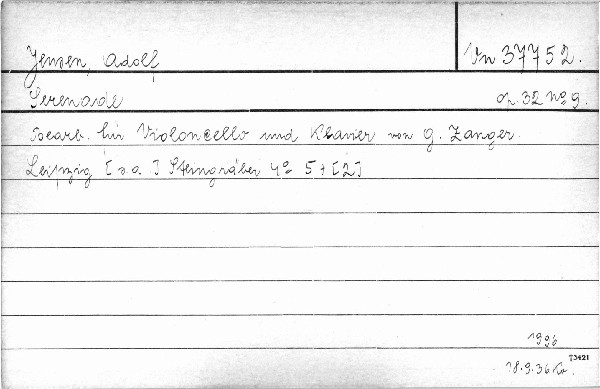 Jensen, Adolf Vn 37752.
Serenade op. 32 No 9.
Bearb. für Violoncello und Klavier von G. Zanger.
Leipzig [s.a.] Steingräber 4° 5 + [2]
1996
T3421
18.9.36 Kr.